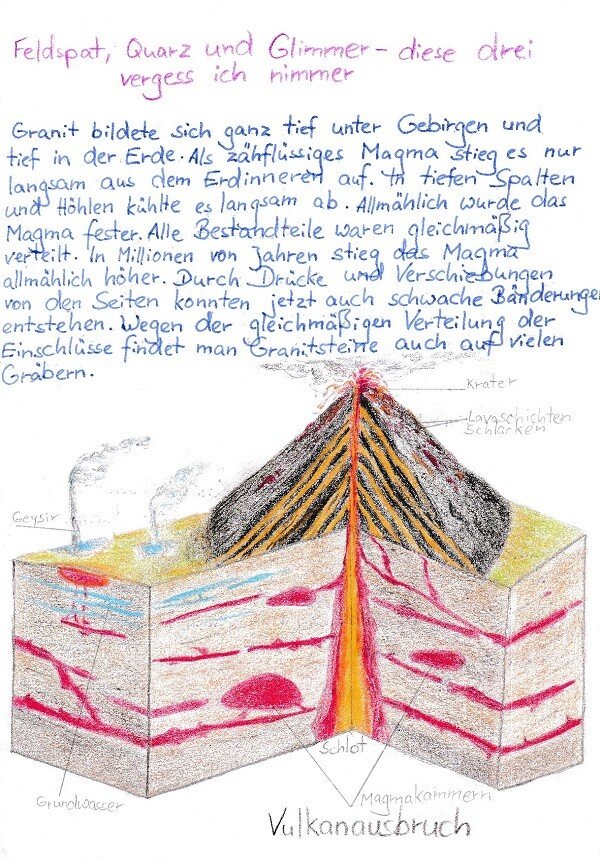 Feldspat, Quarz und Glimmer - diese drei
vergess ich nimmer
Granit bildete sich ganz tief unter Gebirgen und
tief in der Erde. Als zähflüssiges Magma stieg es nur
langsam aus dem Erdinneren auf. In tiefen Spalten
und Höhlen kühlte es langsam ab. Allmählich wurde das
Magma fester. Alle Bestandteile waren gleichmäßig
verteilt. In Millionen von Jahren stieg das Magma
allmählich höher. Durch Drücke und Verschiebungen
von den Seiten konnten jetzt auch schwache Bänderungen
entstehen. Wegen der gleichmäßigen Verteilung der
Einschlüsse findet man Granitsteine auch auf vielen
Gräbern.
Krater
Lavaschichten
Schlacken
Geysir
Schlot
Grundwasser
Magmakammern
Vulkanausbruch